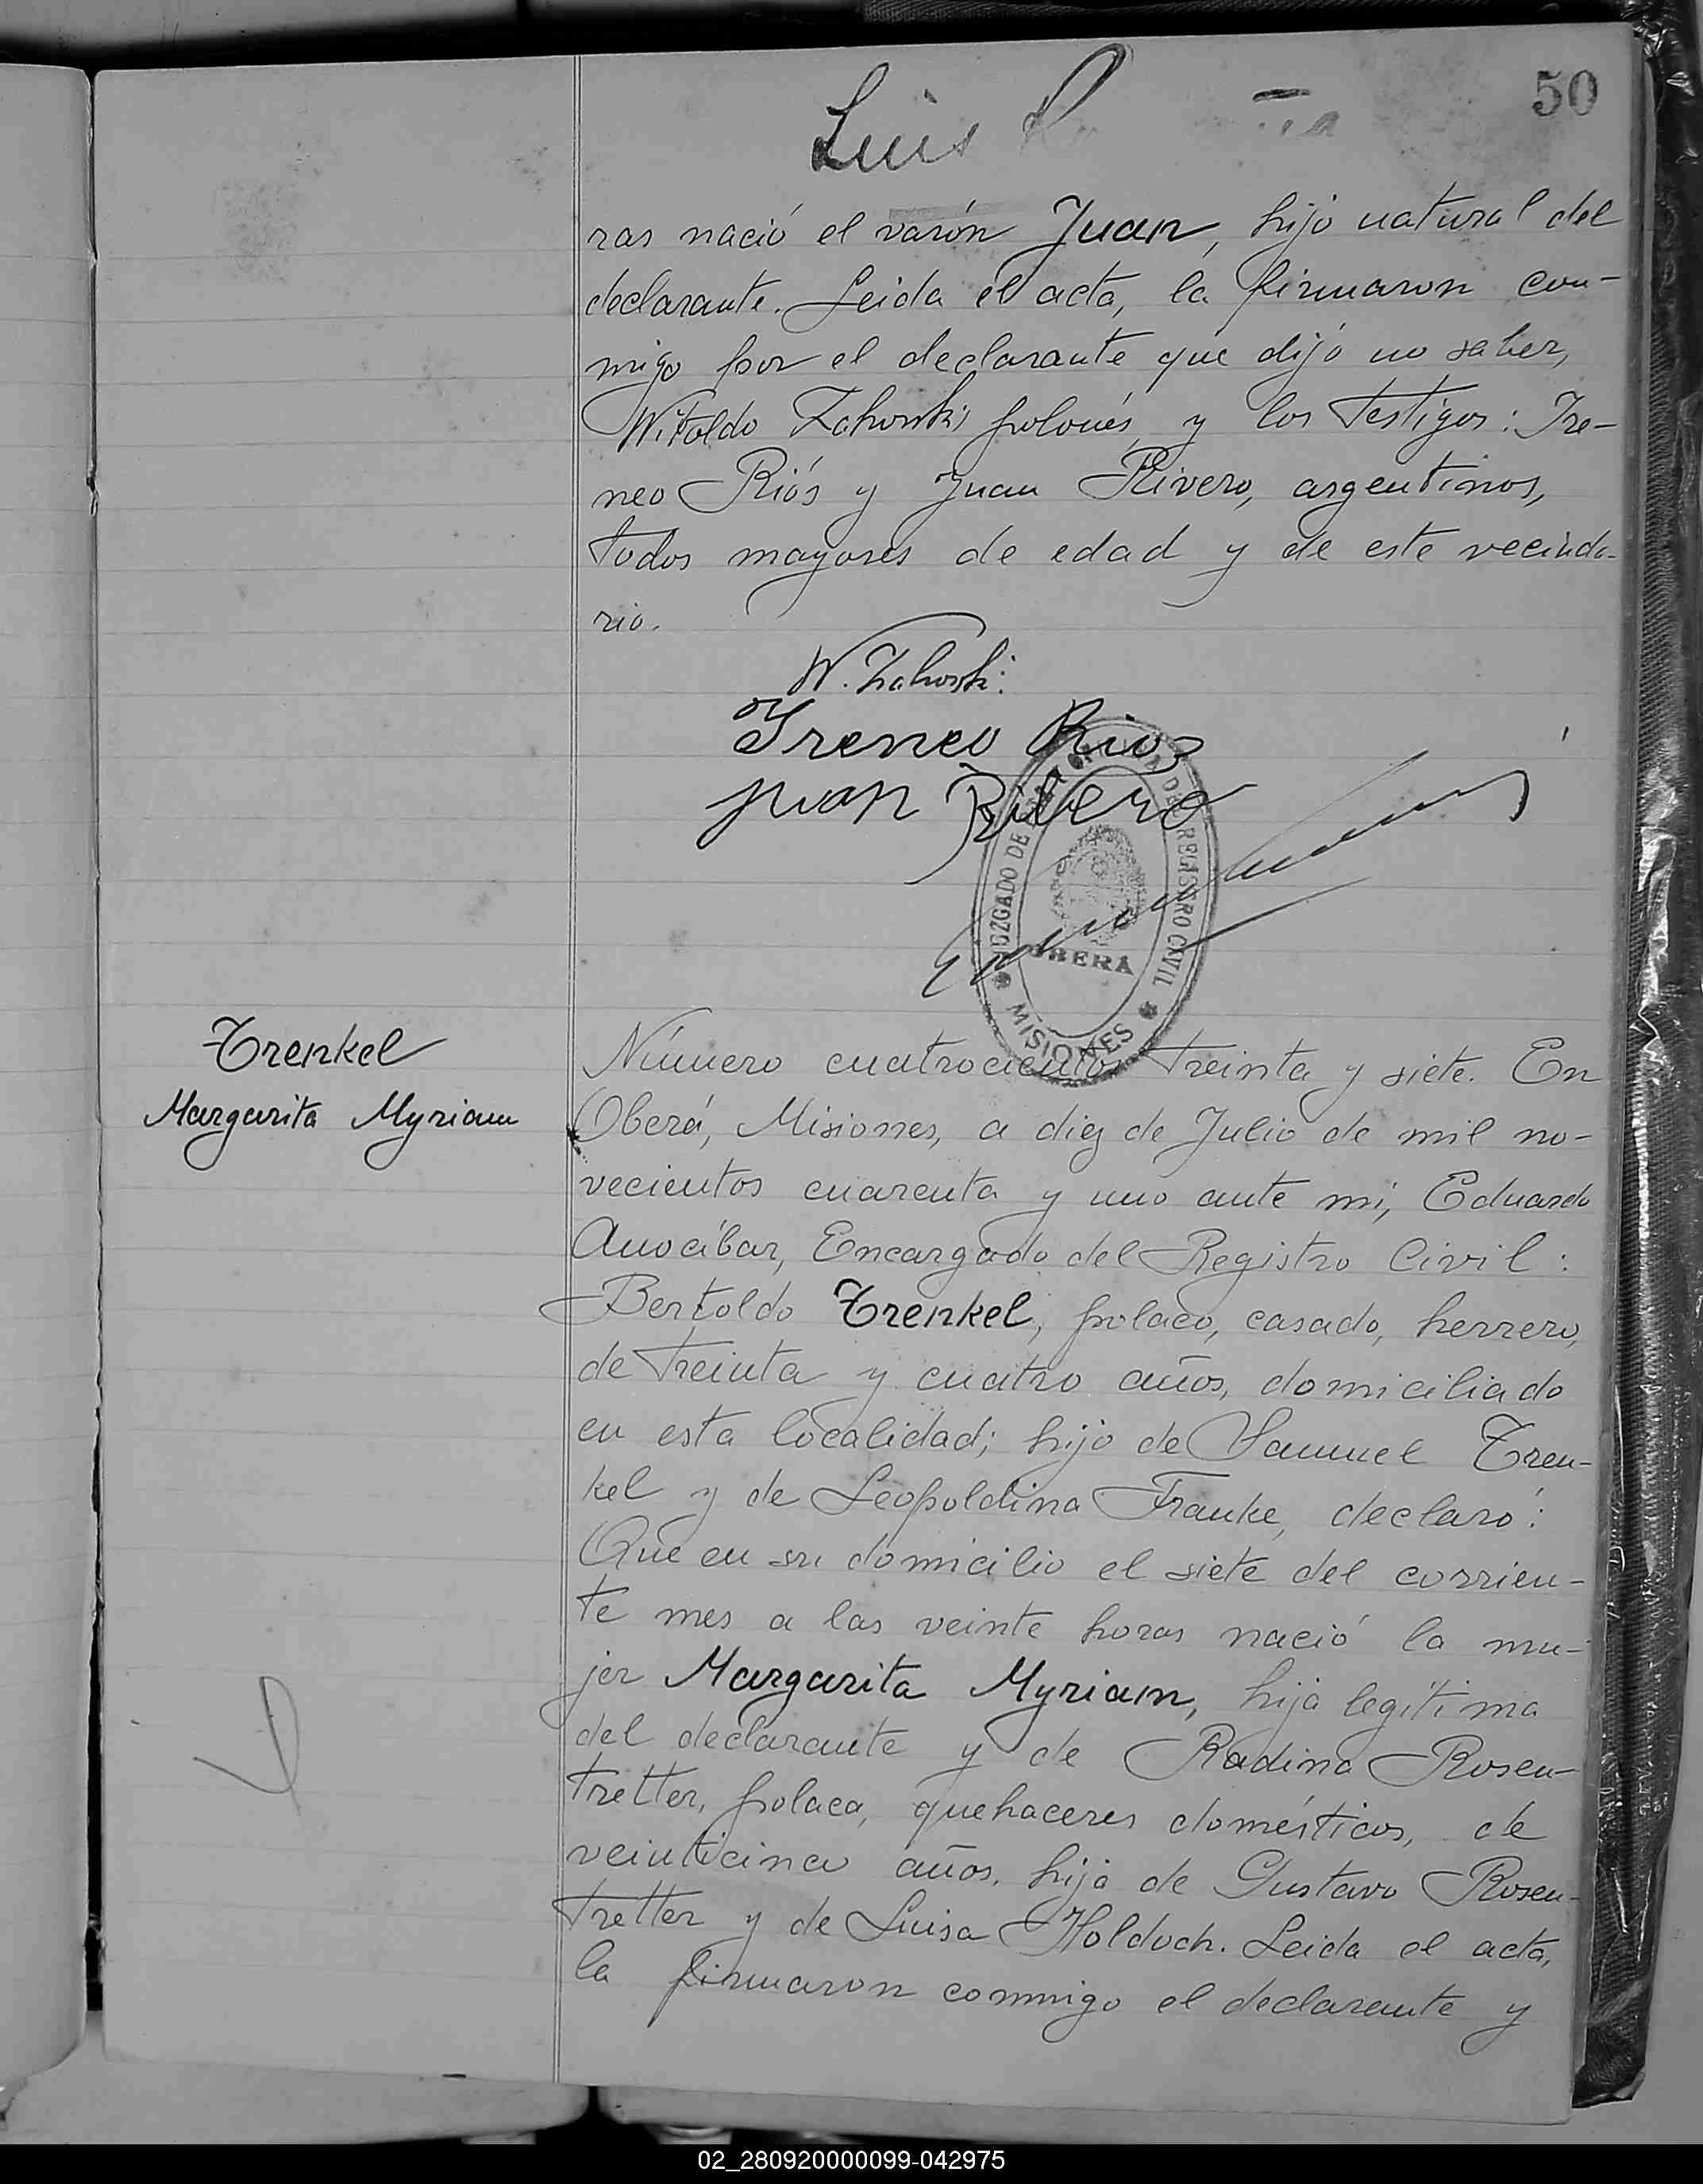 50
Luis
ras nació el varón Juan, hijo natural del
declarante. Leida el acta, la firmaron con-
migo por el declarante que dijo no saber,
Witoldo Zahorski polonés, y los testigos: Ire-
neo Riós y Juan Rivero, argentinos,
todos mayores de edad y de este vecinda-
rio.
W. Zahorski
Ireneo Rios
Juan Ribero
JUZGADO DE PAZ OFICINA DEL REGISTRO CIVIL
OBERÁ
MISIONES
Trenkel
Margarita Myriam
Número cuatrocientos treinta y siete. En
Oberá, Misiones, a diez de Julio de mil no-
vecientos cuarenta y uno ante mi, Eduardo
Anocíbar, Encargado del Registro Civil:
Bertoldo Trenkel, polaco, casado, herrero,
de treinta y cuatro años, domiciliado
en esta localidad; hijo de Samuel Tren-
kel y de Leopoldina Franke, declaró:
Que en su domicilio el siete del corrien-
te mes a las veinte horas nació la mu-
jer Margarita Myriam, hija legítima
del declarante y de Radina Rosen-
tretter, polaca, quehaceres domésticos, de
veinticinco años, hija de Gustavo Rosen-
tretter y de Luisa Holdoch. Leida el acta,
la firmaron conmigo el declarante y
02_280920000099-042975